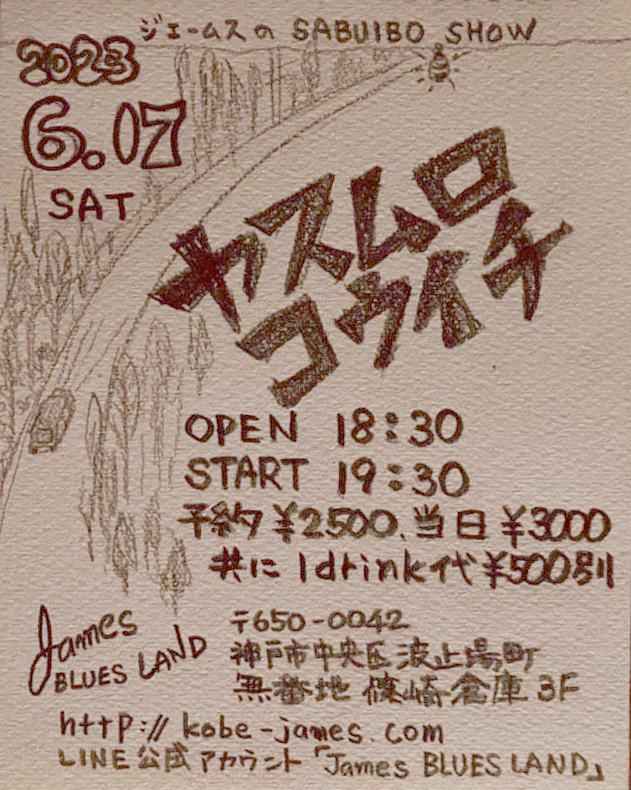 ジェームスの SABUIBO SHOW
2023
6.07
SAT
ヤスムロ
コウイチ
OPEN 18:30
START 19:30
予約¥2500、当日¥3000
共に 1drink代¥500別
James
BLUES LAND
〒650-0042
神戸市中央区波止場町
無番地 篠崎倉庫 3F
http://kobe-james.com
LINE公式アカウント「James BLUES LAND」